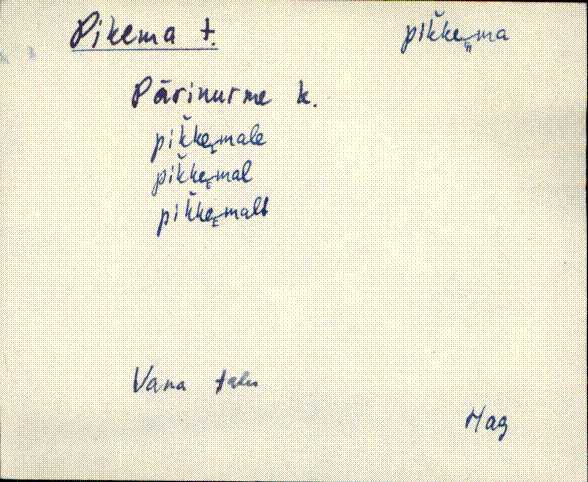 Pikema t. pik̆ke̮ma
Pärinurme k.
pik̆ke̮male
pik̆ke̮mal
pik̆ke̮malt
Vana talu
Mag